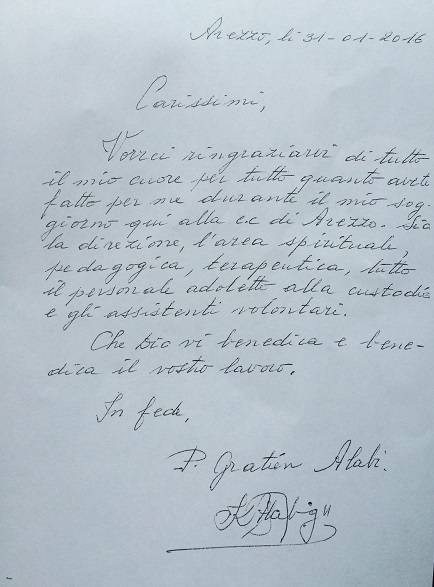 Arezzo, lì 31-01-2016
Carissimi,
Vorrei ringraziarvi di tutto
il mio cuore per tutto quanto avete
fatto per me durante il mio sog-
giorno qui alla cc di Arezzo. Sia
la direzione, l'area spirituale,
pedagogica, terapeutica, tutto
il personale adoletto alla custodia
e gli assistenti volontari.
Che Dio vi benedica e bene-
dica il vostro lavoro.
In fede,
P. Gratien Alabi.